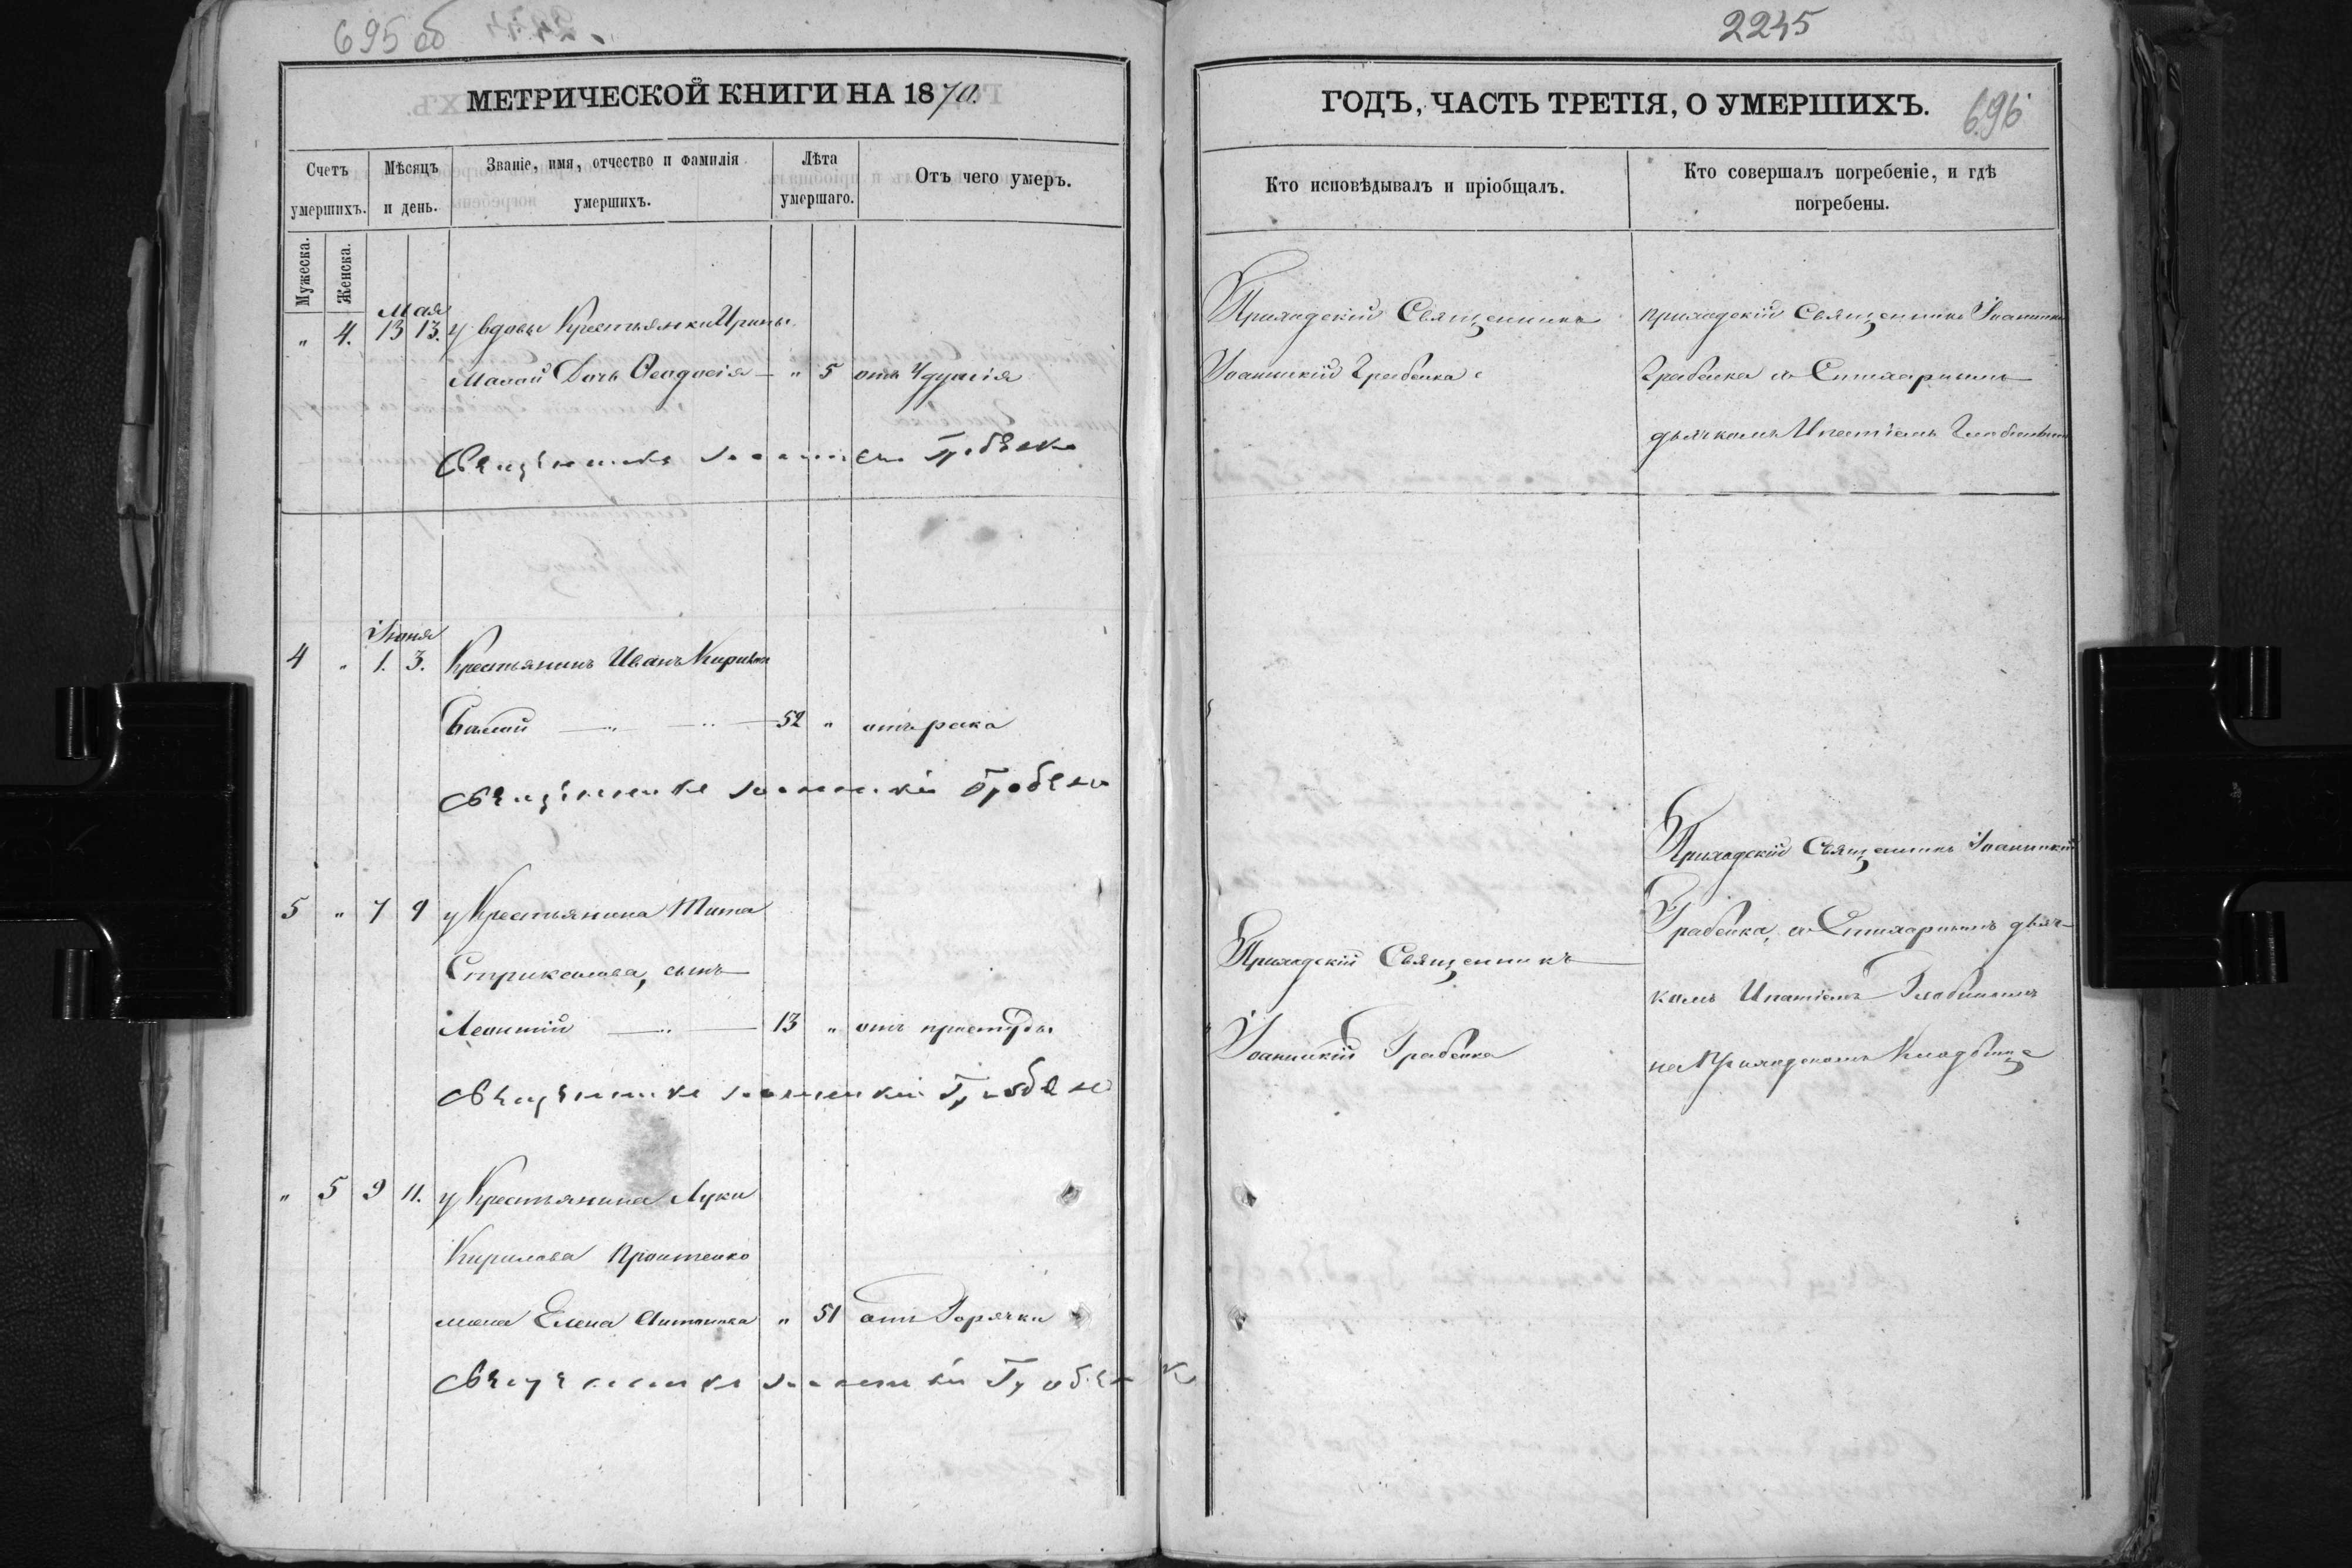 695 об
МЕТРИЧЕСКОЙ КНИГИ НА 1870.
Счетъ умершихъ.
Мужеска.
Женска.
Мѣсяцъ и день.
Званіе, имя, отчество и фамилія умершихъ.
Лѣта умершаго.
Отъ чего умеръ.
Мая
" 4. 13 13. у вдовы Крестьянки Ирины
Малой Дочь Ѳеодосія — " 5 отъ Удушія
Священникъ Іоанникій Грабенко
Іюня
4 " 1. 3. Крестьянинъ Иванъ
52 " отъ рака
Священникъ Іоанникій Грабенко
5 " 7 9 у Крестьянина Тита
сынъ
Леонтій — 13 " отъ простуды
Священникъ Іоанникій Грабенко
" 5 9 11. у Крестьянина Луки
Кирилова
жена Елена " 51 отъ Горячки
Священникъ Іоанникій Грабенк
2245
ГОДЪ, ЧАСТЬ ТРЕТІЯ, О УМЕРШИХЪ.
696
Кто исповѣдывалъ и пріобщалъ.
Кто совершалъ погребеніе, и гдѣ погребены.
Приходскій Священникъ
Іоанникій Грабенка
приходскій Священникъ Іоанникій
Грабенка съ Стихарнымъ
дьячкомъ Ипатіемъ
Приходскій Священникъ
Іоанникій Грабенка
Приходскій Священникъ Іоанникій
Грабенка, съ Стихарнымъ дьяч-
комъ Ипатіемъ
на Приходскомъ Кладбище